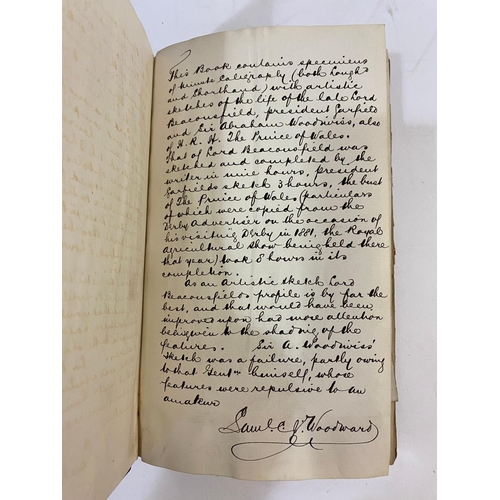 This Book contains specimens
of minute caligraphy (both Longh
and Shorthand) with artistic
sketches of the life of the late Lord
Beaconsfield, president Garfield
and Sir Abraham Woodwiss, also
of H.R.H. The Prince of Wales.
That of Lord Beaconsfield was
sketched and completed by the
writer in nine hours, president
Garfields sketch 3 hours, the bust
of The Prince of Wales (particulars
of which were copied from the
Derby Advertiser on the occasion of
his visiting Derby in 1881, the Royal
Agricultural Show being held there
that year) took 8 hours in its
completion.
as an Artistic sketch Lord
Beaconsfields profile is by far the
best, and that would have been
improved upon had more attention
been given to the shading of the
features. Sir A. Woodwiss'
sketch was a failure, partly owing
to that Gentn himself, whose
features were repulsive to an
amateur
Saml. C. J. Woodward